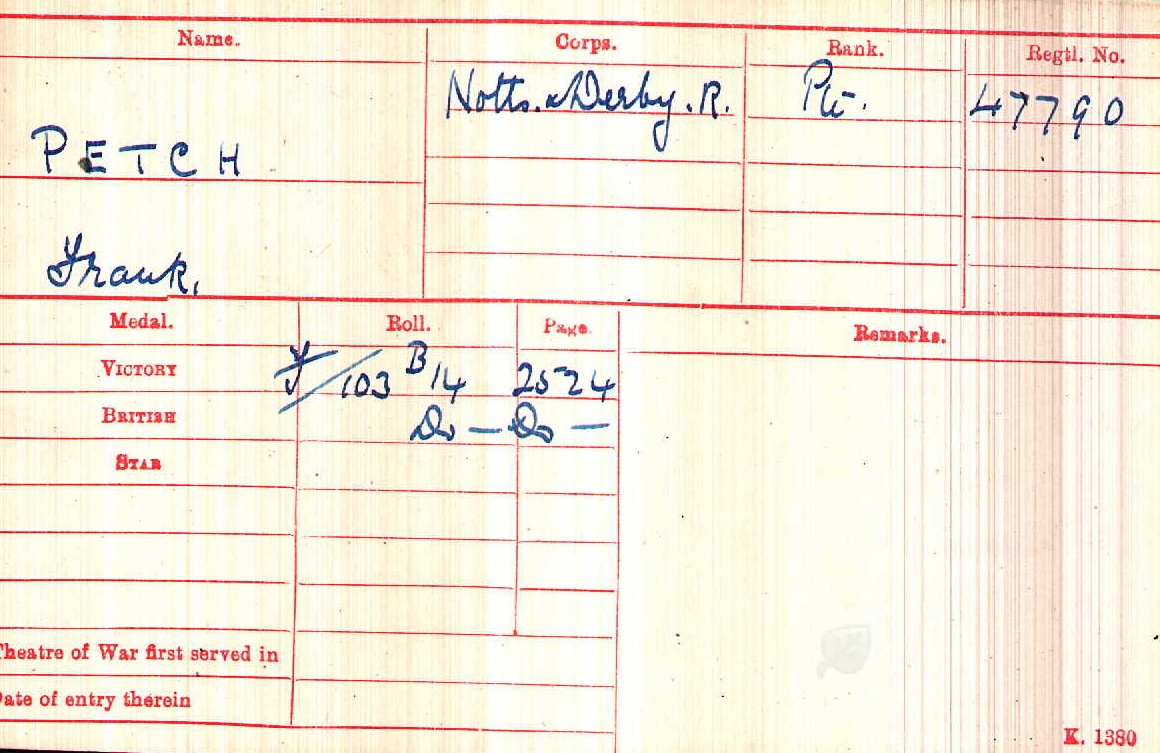 Name. Corps. Rank. Regtl. No.
Notts. & Derby. R. Pte. 47790
PETCH
Frank.
Medal. Roll. Page. Remarks.
VICTORY J/103 B/4 2524
BRITISH Do — Do —
STAR
Theatre of War first served in
Date of entry therein
K. 1380